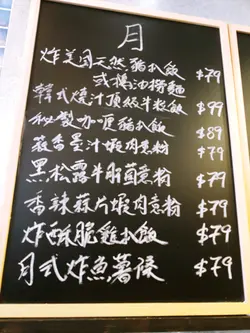 月
炸美國天然豬扒飯 $79
或擔油撈麵
韓式燒汁頂級牛松飯 $99
秘製咖喱豬扒飯 $89
蒜香墨汁蝦肉意粉 $79
黑松露牛肝菌意粉 $79
香辣蒜片蝦肉意粉 $79
炸酥脆雞扒飯 $79
月式炸魚薯條 $79